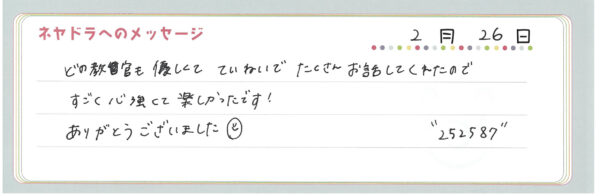 ネヤドラへのメッセージ
2 月 26 日
どの教官も 優しくて ていねいで たくさん お話してくれたので
すごく 心強くて 楽しかったです!
ありがとうございました
"252587"